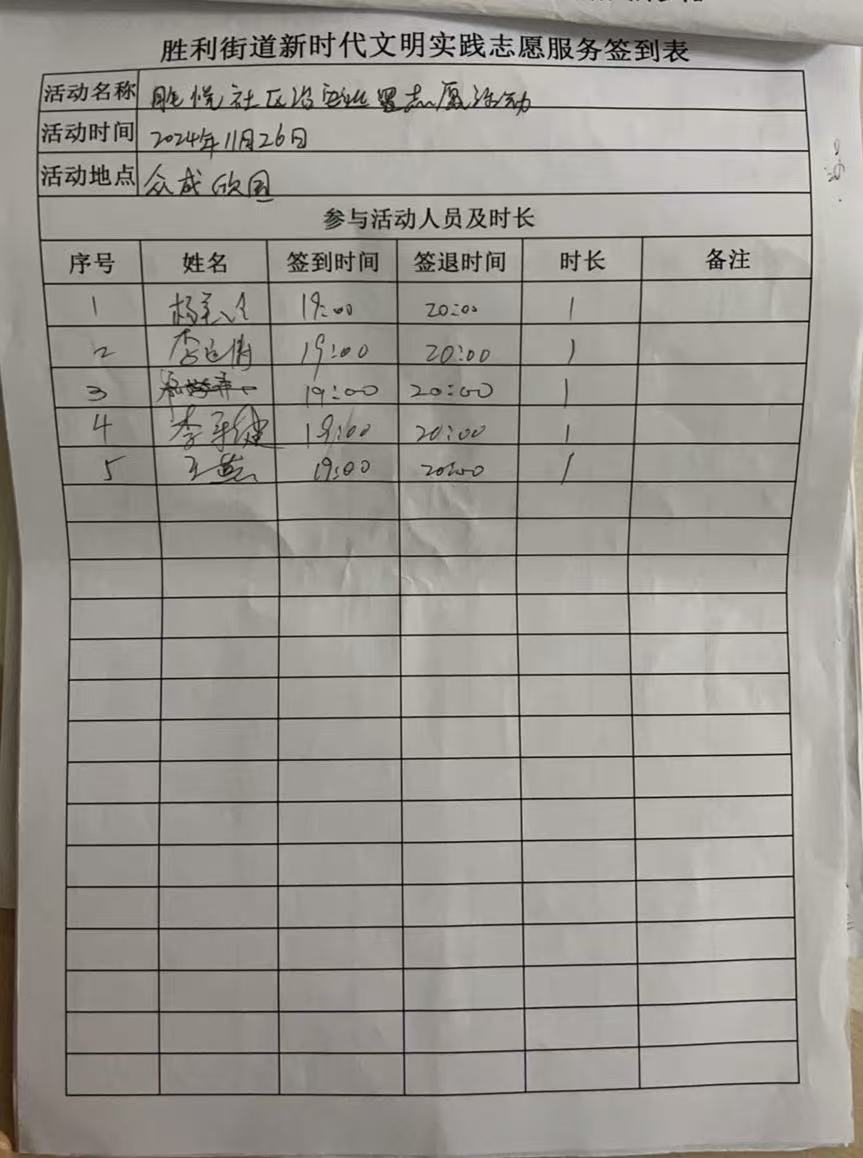 胜利街道新时代文明实践志愿服务签到表
活动名称 胜悦社区治安巡逻志愿活动
活动时间 2024年11月26日
活动地点 众成欣园
参与活动人员及时长
序号 姓名 签到时间 签退时间 时长 备注
1 19:00 20:00 1
2 李 19:00 20:00 1
3 19:00 20:00 1
4 李 健 19:00 20:00 1
5 王 19:00 20:00 1